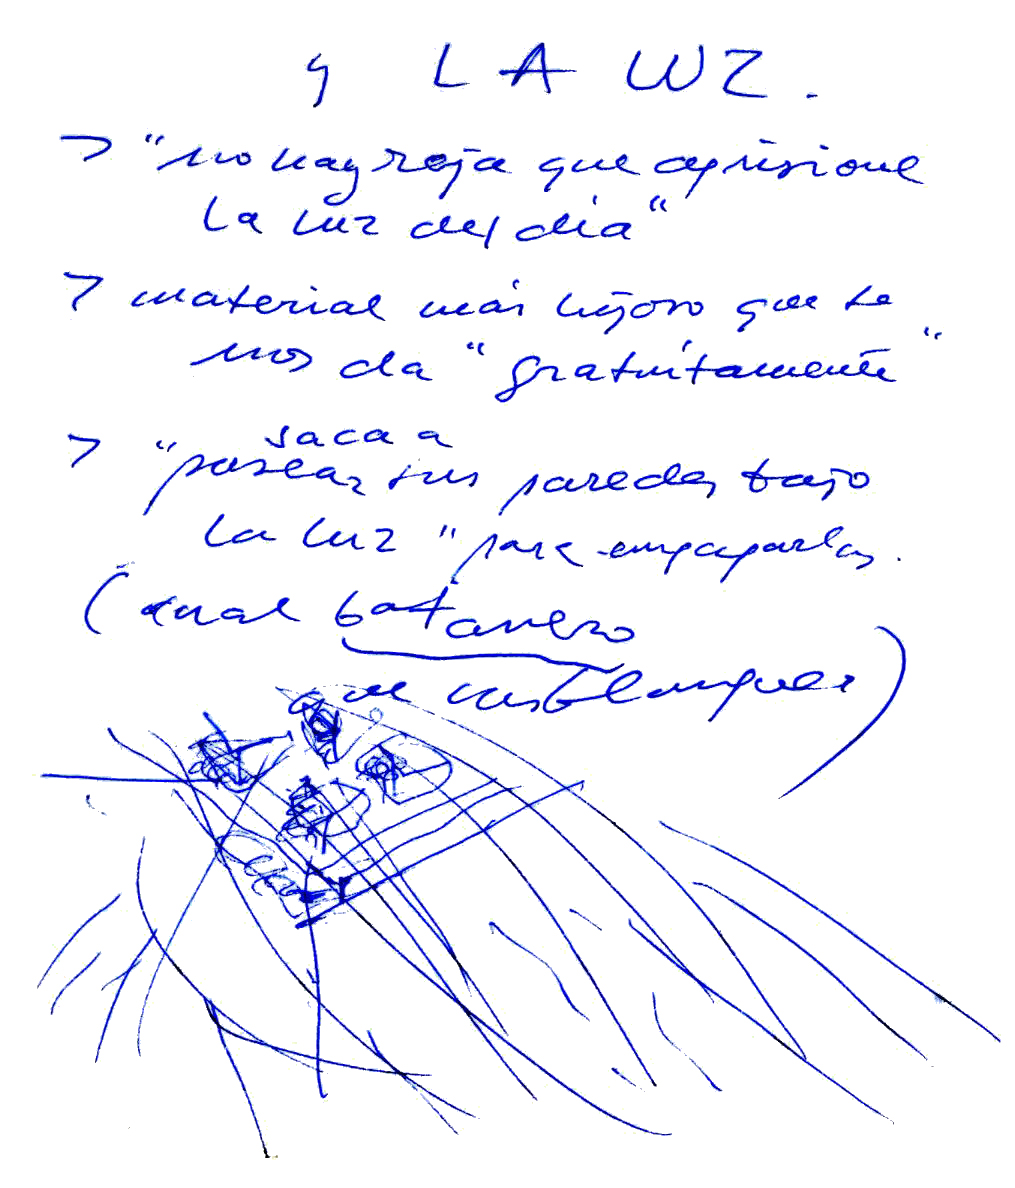 y LA LUZ.
> "no hay reja que aprisione
la luz del día"
> material más lujoso que se
nos da "gratuitamente"
saca a
> "pasear sus paredes bajo
la luz" para empaparlas.
(cual batanero
de